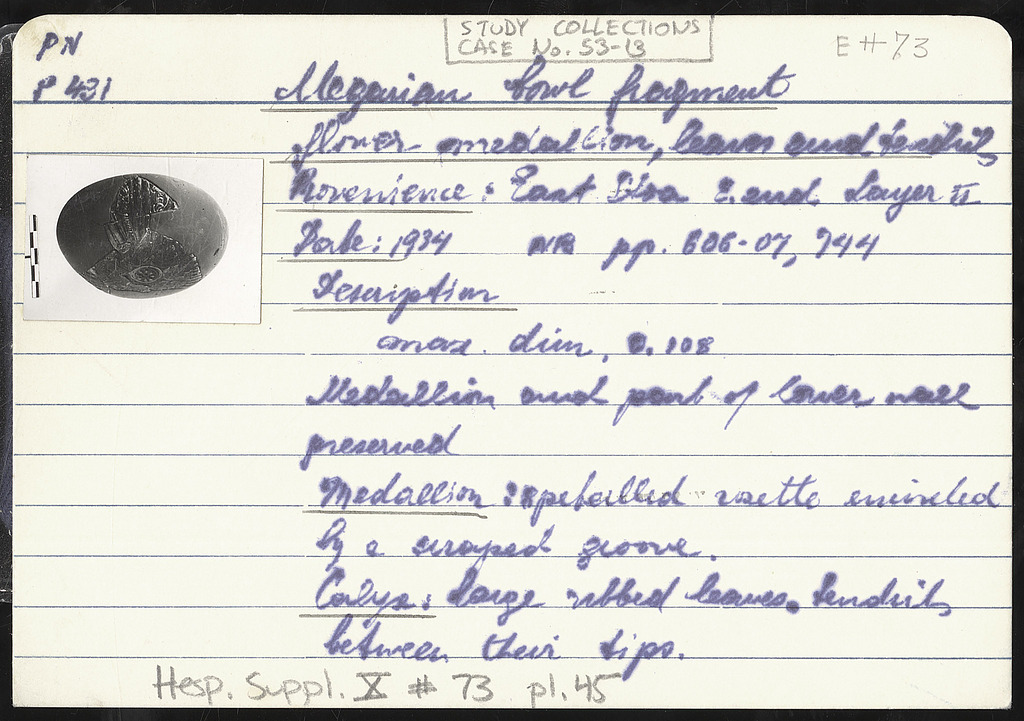 PN
P 431
STUDY COLLECTIONS
CASE No. S3-13
E # 73
Megarian bowl fragment
flower medallion, leaves and tendrils
Provenience: East Stoa E. end Layer II
Date: 1934 NB pp. 606-07, 744
Description
max. dim. 0.108
Medallion and part of lower wall
preserved
Medallion: 8 petalled rosette encircled
by a scraped groove.
Calyx: large ribbed leaves. Tendrils
between their tips.
Hesp. Suppl. X # 73 pl. 45